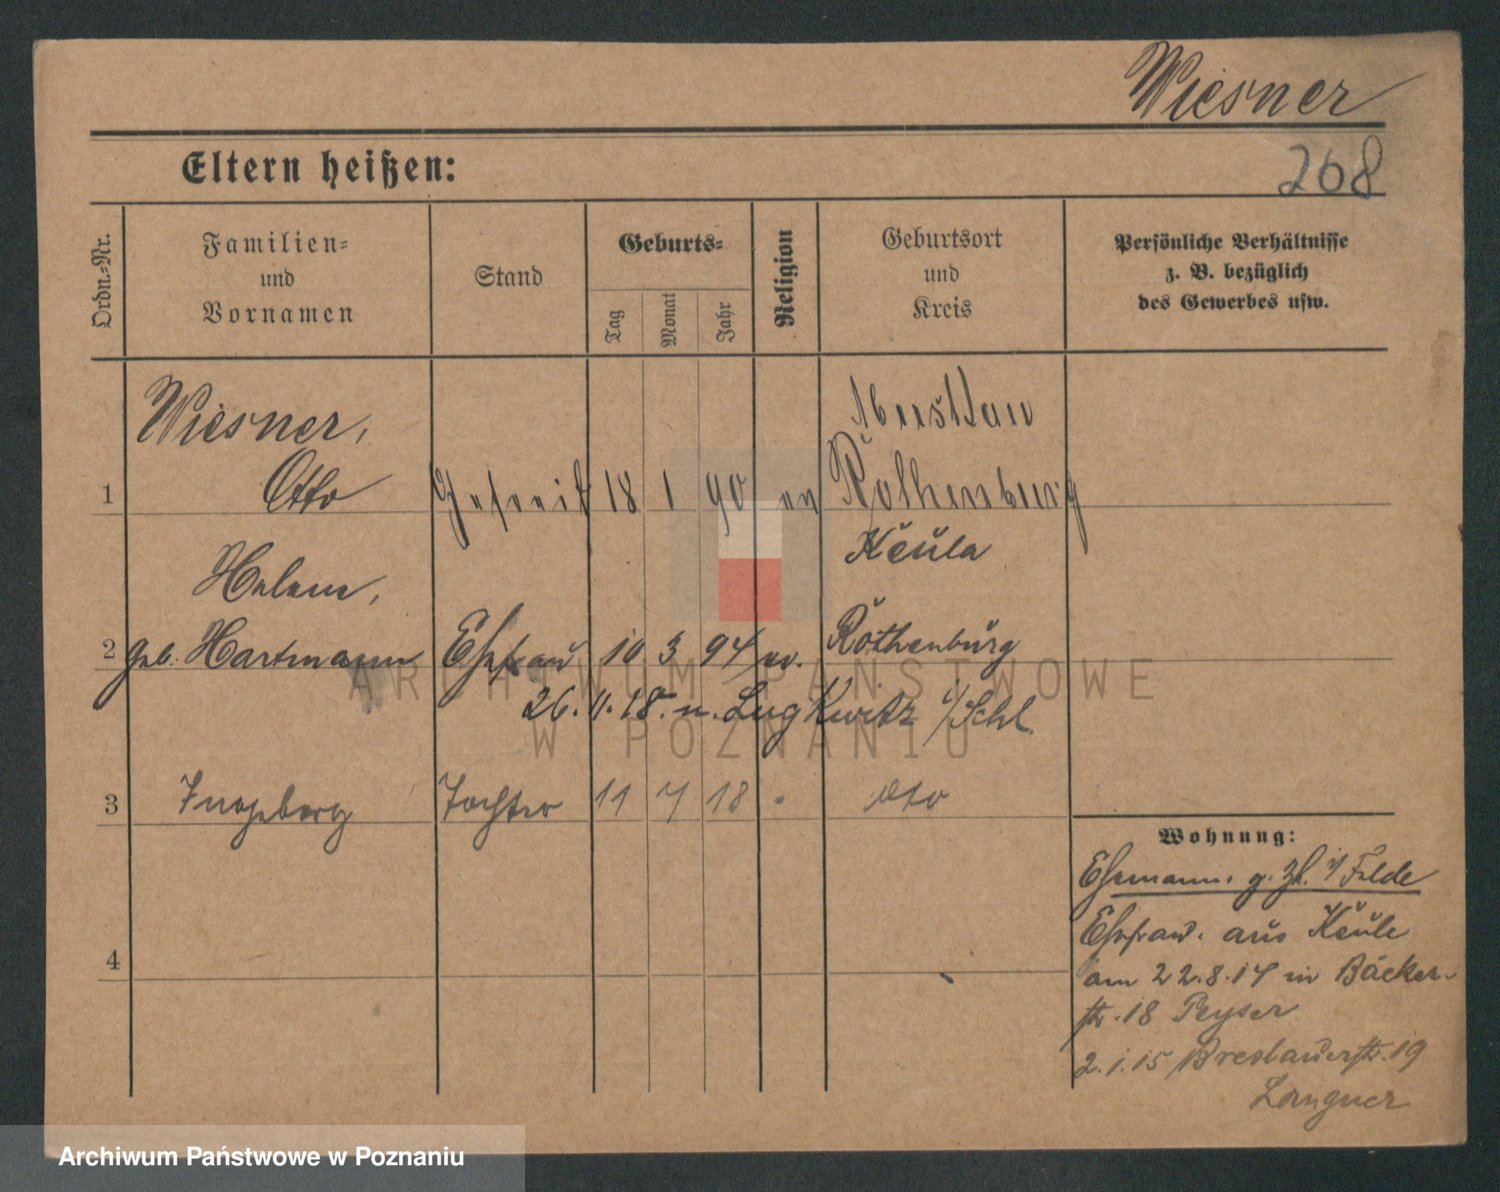 Wiesner
Eltern heißen:
268
Ordn.-Nr.
Familien-
und
Vornamen
Stand
Geburts-
Tag
Monat
Jahr
Religion
Geburtsort
und
Kreis
Persönliche Verhältnisse
z. B. bezüglich
des Gewerbes usw.
Wiesner,
Otto
1
Gefreit
18
1
90
ev
Rothenburg
Keula
Helene,
2
geb. Hartmann
Ehefrau
10
3
94
ev.
Rothenburg
26. 11. 18. n. Lugknitz i/Schl.
3
Ingeborg
Tochter
11
7
18
dto
4
Wohnung:
Ehemann. z. Zt. i/Felde
Ehefrau. aus Keula
am 22.8.14 in Bäcker-
str. 18 Peyser
2.1.15 Breslauerstr. 19
Langner
ARCHIWUM PAŃSTWOWE
W POZNANIU
Archiwum Państwowe w Poznaniu